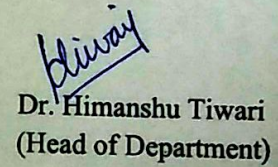 Tiwari
Dr. Himanshu Tiwari
(Head of Department)